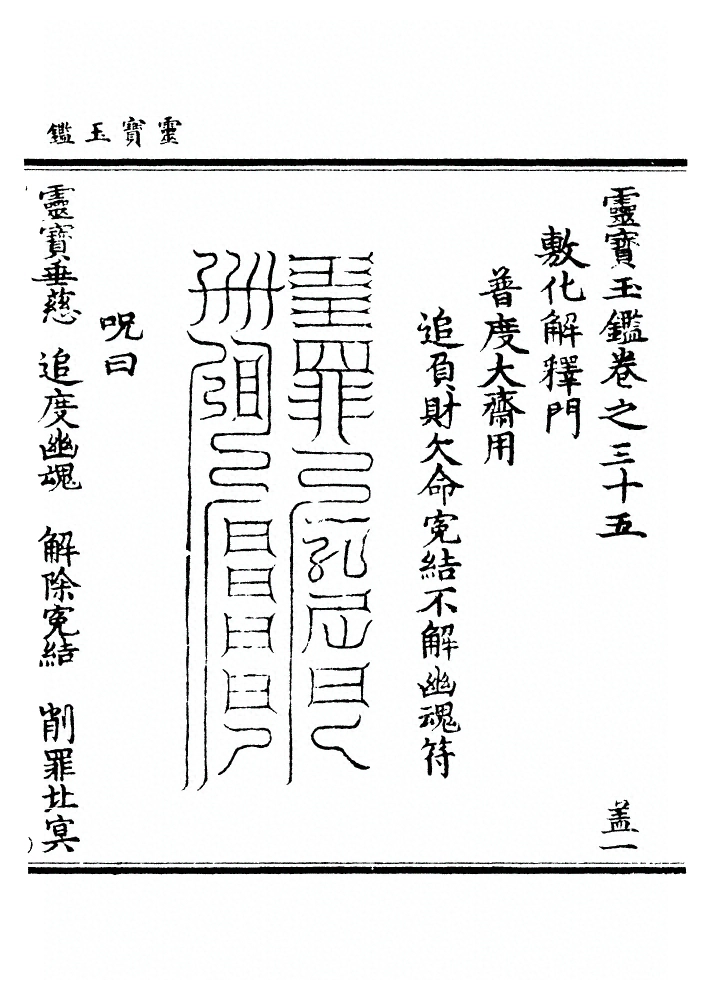 靈寶玉鑑
靈寶玉鑑卷之三十五 盖一
敷化解釋門
普度大齋用
追負財欠命寃結不解幽魂符
呪曰
靈寶垂慈 追度幽魂 解除寃結 削罪北冥